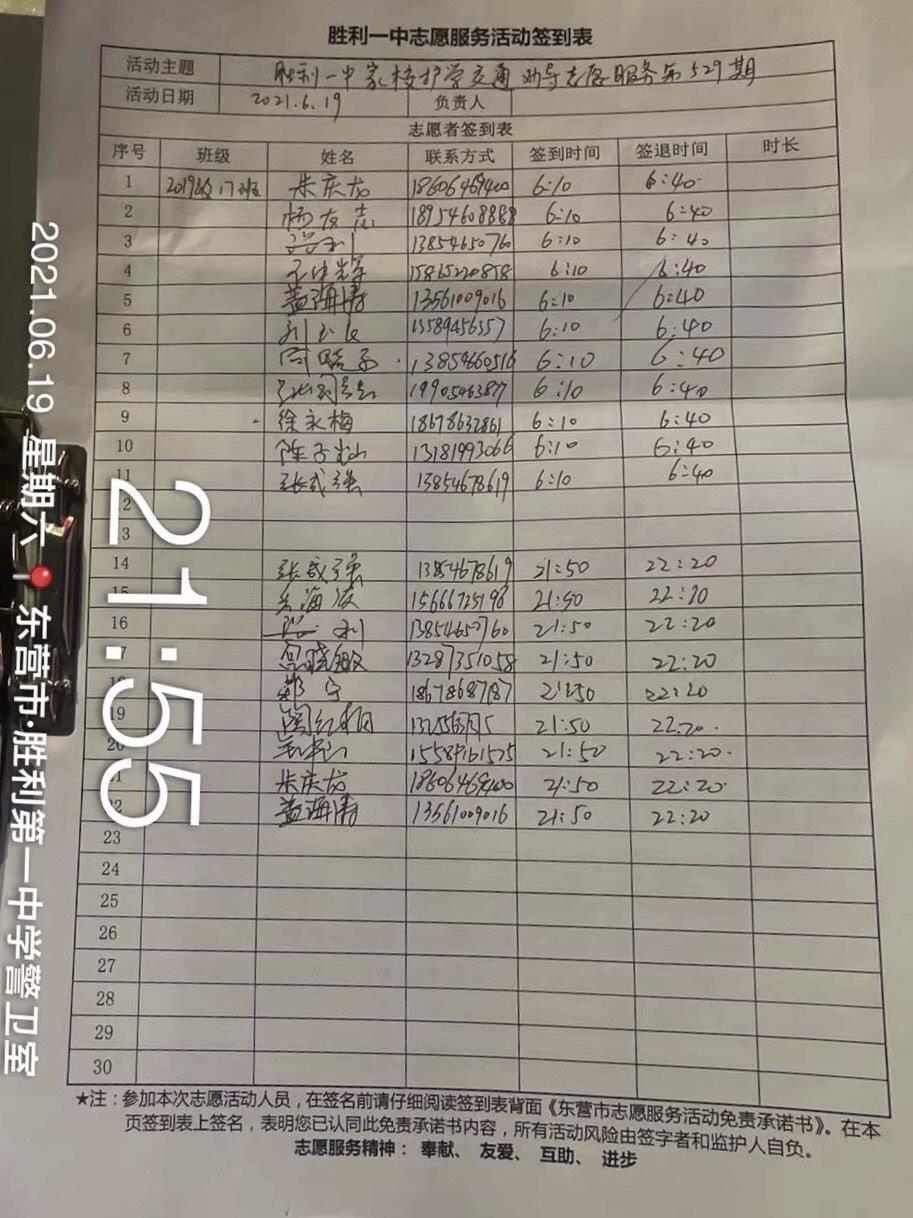 胜利一中志愿服务活动签到表
活动主题 胜利一中家校护学交通劝导志愿服务第529期
活动日期 2021.6.19 负责人
志愿者签到表
序号 班级 姓名 联系方式 签到时间 签退时间 时长
1 2019级17班 朱庆龙 18606469400 6:10 6:40
2 杨友志 18954608888 6:10 6:40
3 13854650760 6:10 6:40
4 15865220858 6:10 6:40
5 盖海涛 13561009016 6:10 6:40
6 13589456357 6:10 6:40
7 13854660516 6:10 6:40
8 19905463877 6:10 6:40
9 徐永梅 18678632861 6:10 6:40
10 13181993066 6:10 6:40
11 张成强 13854678619 6:10 6:40
2
3
14 张成强 13854678619 21:50 22:20
15 15666725198 21:50 22:20
16 利 13854650760 21:50 22:20
7 13287351058 21:50 22:20
18 郑宁 18678687187 21:50 22:20
19 21:50 22:20
20 15589161525 21:50 22:20
1 朱庆龙 18606469400 21:50 22:20
2 盖海涛 13561009016 21:50 22:20
23
24
25
26
27
28
29
30
★注：参加本次志愿活动人员，在签名前请仔细阅读签到表背面《东营市志愿服务活动免责承诺书》。在本
页签到表上签名，表明您已认同此免责承诺书内容，所有活动风险由签字者和监护人自负。
志愿服务精神： 奉献、 友爱、 互助、 进步
21:55
2021.06.19 星期六
东营市·胜利第一中学警卫室